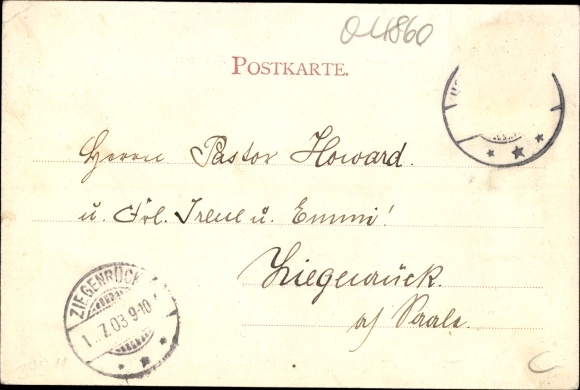 04860
POSTKARTE.
Herrn Pastor Howard.
u. Frl. Irene u. Emmi!
Ziegenrück.
a/ Saale.
ZIEGENRÜCK
1.7.03 9-10